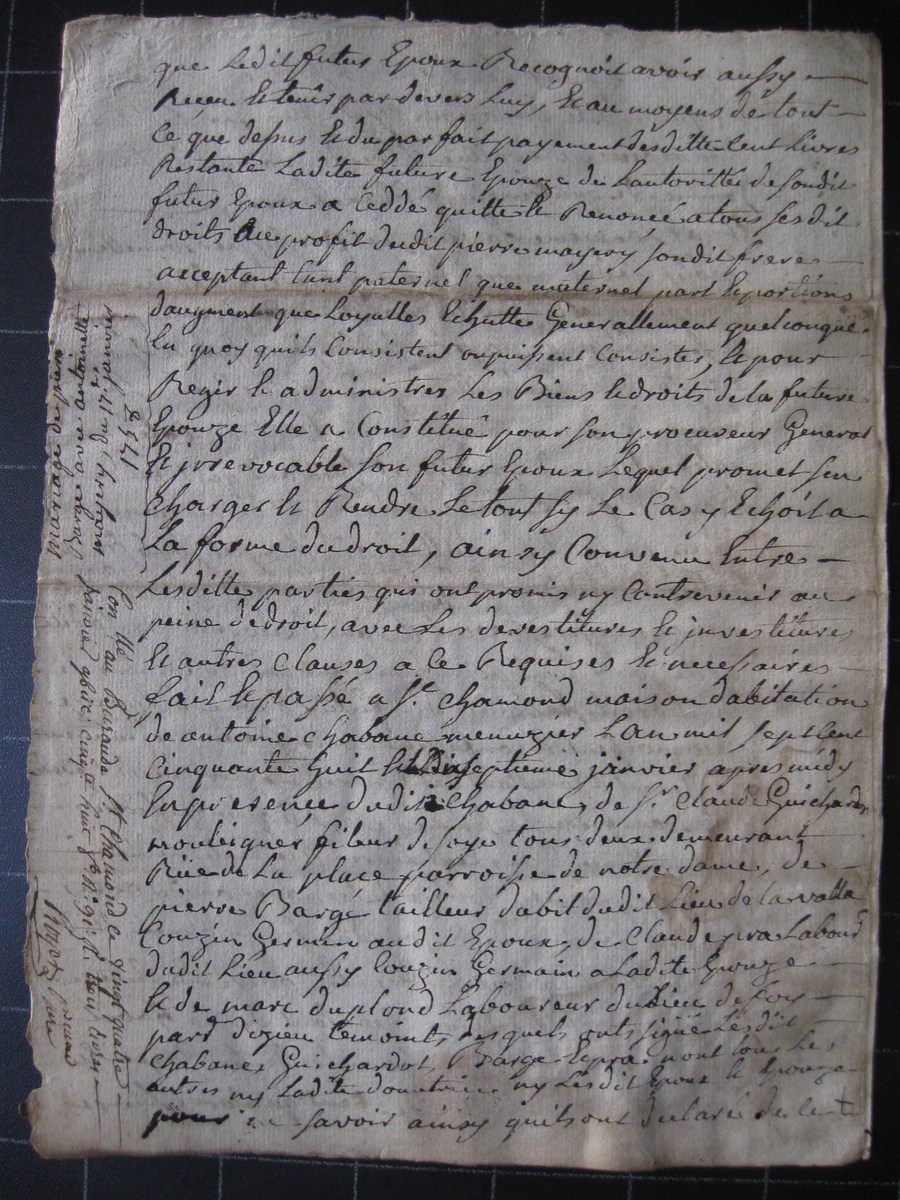 que Ledit futur Epoux Recognoit avoir aussy
Receu Et tenir par devers Luy, Et au moyens de tout
Ce que dessus Et du parfait payement desditte Cent Livres
Restante Ladite future Epouze de Lautorittée de sondit
futur Epoux a Ceddé quitté Et Renoncé a tous sesdit
droits au profit dudit pierre sondit frere
acceptant tant paternel que maternel part Et portions
daugment que Loyalles Echutte Generallement quelconque
En quoy quils Consistent ou puissent Consister, Et pour
Regir Et administrer Les Biens Et droits de la future
Epouze Elle a Constitué pour son procureur General
Et jrrevocable son futur Epoux Lequel promet sen
Charger Et Rendre Le tout sy Le Cas y Echoit a
La forme du droit, ainsy Convenu Entre
Lesditte parties qui ont promis ny Contrevenir au
peine de droit, avec Les devestitures Et jnvestitures
Et autres Clauses a Ce Requises Et necessaires
fait Et passé a St. Chamond maison dabitation
de antoine Chabane menuzier Lan mil sept Cent
Cinquante huit Et Le Dix septieme janvier apres midy
En presence dudit Chabane, de Sr. Claude Guichardot
moulignér fileur de soye tous deux demeurant
Rüe de La place parroisse de notre dame, de
pierre Bargé tailleur dabit dudit Lieu de Lavalla
Couzin Germain audit Epoux, de Claude pra Labour
dudit Lieu aussy Couzin Germain a Ladite Epouze
Et de marc duplond Laboureur du Lieu de
part dizieu temoints desquels onts signé Lesdit
Chabane, Guichardot, Bargé Et pra non tous Les
autres ny Ladite donatrice ny Lesdit Epoux Et Epouze
pour ne savoir ainsy quils ont declaré de ce
mariage de
avec antoinette
Con llé au Bureau de St. Chamond Ce vingt quatre
janvier